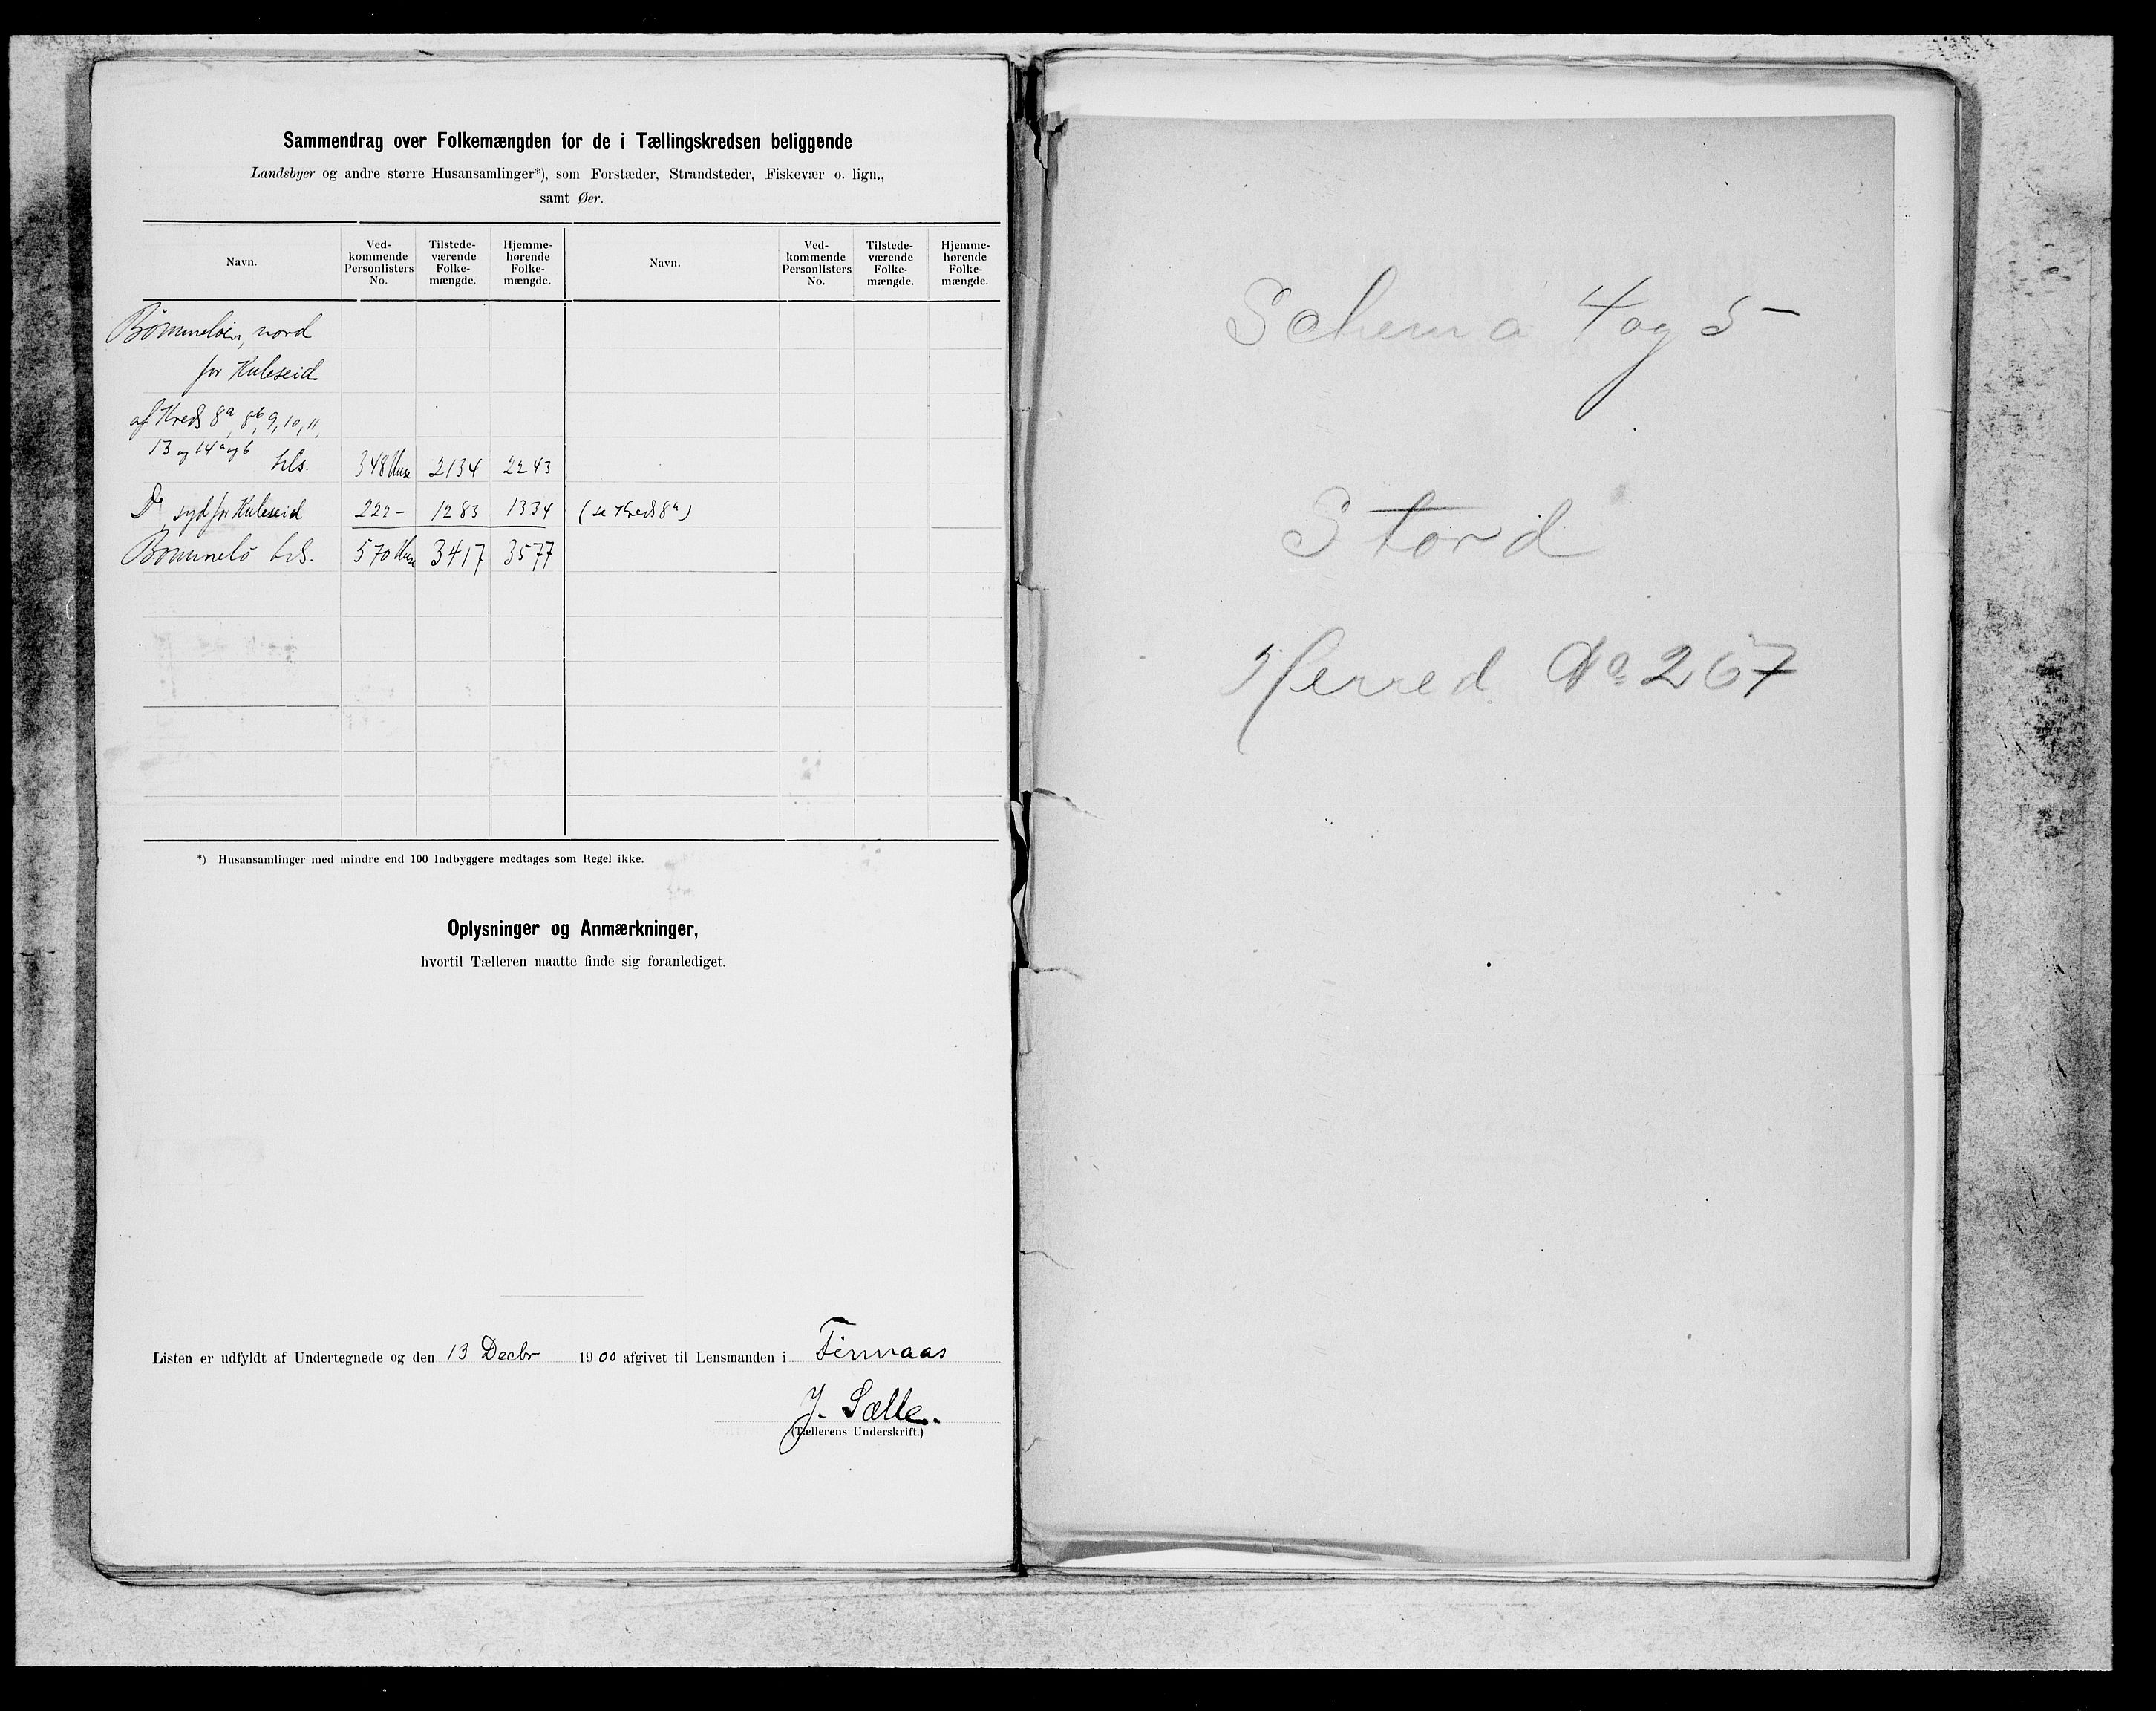 Sammendrag over Folkemængden for de i Tællingskredsen beliggende
Landsbyer og andre større Husansamlinger*), som Forstæder, Strandsteder, Fiskevær o. lign.,
samt Øer.
Navn. Ved-kommende Personlisters No. Tilstede-værende Folke-mængde. Hjemme-hørende Folke-mængde. Navn. Ved-kommende Personlisters No. Tilstede-værende Folke-mængde. Hjemme-hørende Folke-mængde.
Bömmelöen, nord
for Kuleseid
af Kreds 8a, 8b, 9, 10, 11,
13 og 14 a og b tils. 348 Huse 2134 2243
Do syd for Kuleseid 222 - 1283 1334 (se Kreds 8a)
Bömmelö tils. 570 Huse 3417 3577
*) Husansamlinger med mindre end 100 Indbyggere medtages som Regel ikke.
Oplysninger og Anmærkninger,
hvortil Tælleren maatte finde sig foranlediget.
Listen er udfyldt af Undertegnede og den 13 Decbr 1900 afgivet til Lensmanden i Finnaas
J. Sælle.
(Tællerens Underskrift.)
Schema 4 og 5
Stord
Herred No 267